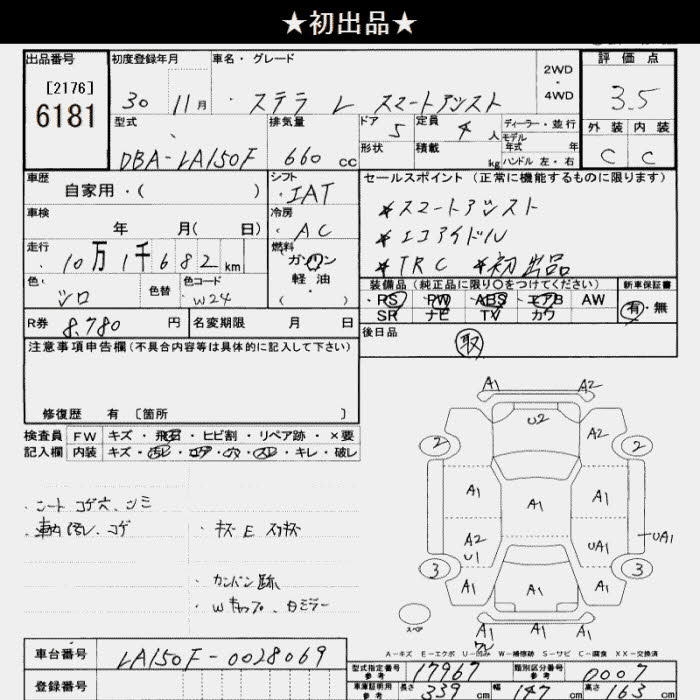 ★初出品★
出品番号
[2176]
6181
初度登録年月
30 11月
車名・グレード
ステラ L スマートアシスト
2WD
・
4WD
評価点
3.5
型式
DBA-LA150F
排気量
660 cc
ドア 5
形状
定員 4 人
積載 kg
ディーラー・並行
モデル
年式 年
ハンドル 左・右
外装 内装
C C
車歴
自家用・( )
シフト
IAT
セールスポイント (正常に機能するものに限ります)
*スマートアシスト
*エコアイドル
*TRC *初出品
車検
年 月( 日)
冷房
AC
走行
10万1千682km
燃料
ガソリン
軽油
・( )
色
シロ
色替
色コード
W24
装備品 (純正品に限り○をつけてください)
・PS PW ABS エアB AW
SR ナビ TV カワ
新車保証書
有・無
R券
8,780 円
名変期限 月 日
後日品
取
注意事項申告欄(不具合内容等は具体的に記入して下さい)
修復歴 有 〔箇所 〕
検査員
記入欄
FW キズ・飛石・ヒビ割・リペア跡・×要
内装 キズ・汚レ・コゲ・穴・スレ・キレ・破レ
・シート コゲ穴、シミ
・車内汚レ、コゲ
・カンバン跡
A1 A2
U2
A2
2 2
A1 A1 A1
A2
U1
UA1
UA1
3 3
A1 A1 A1
A1 A1 A1
スペア
A-キズ E-エクボ U-凹み W-補修跡 S-サビ C-腐食 XX-交換済
車台番号
LA150F-0028069
登録番号
型式指定番号
参考
17967
類別区分番号
参考
0007
車庫証明用
参考
長さ 339 cm
幅 147 cm
高さ 163 cm